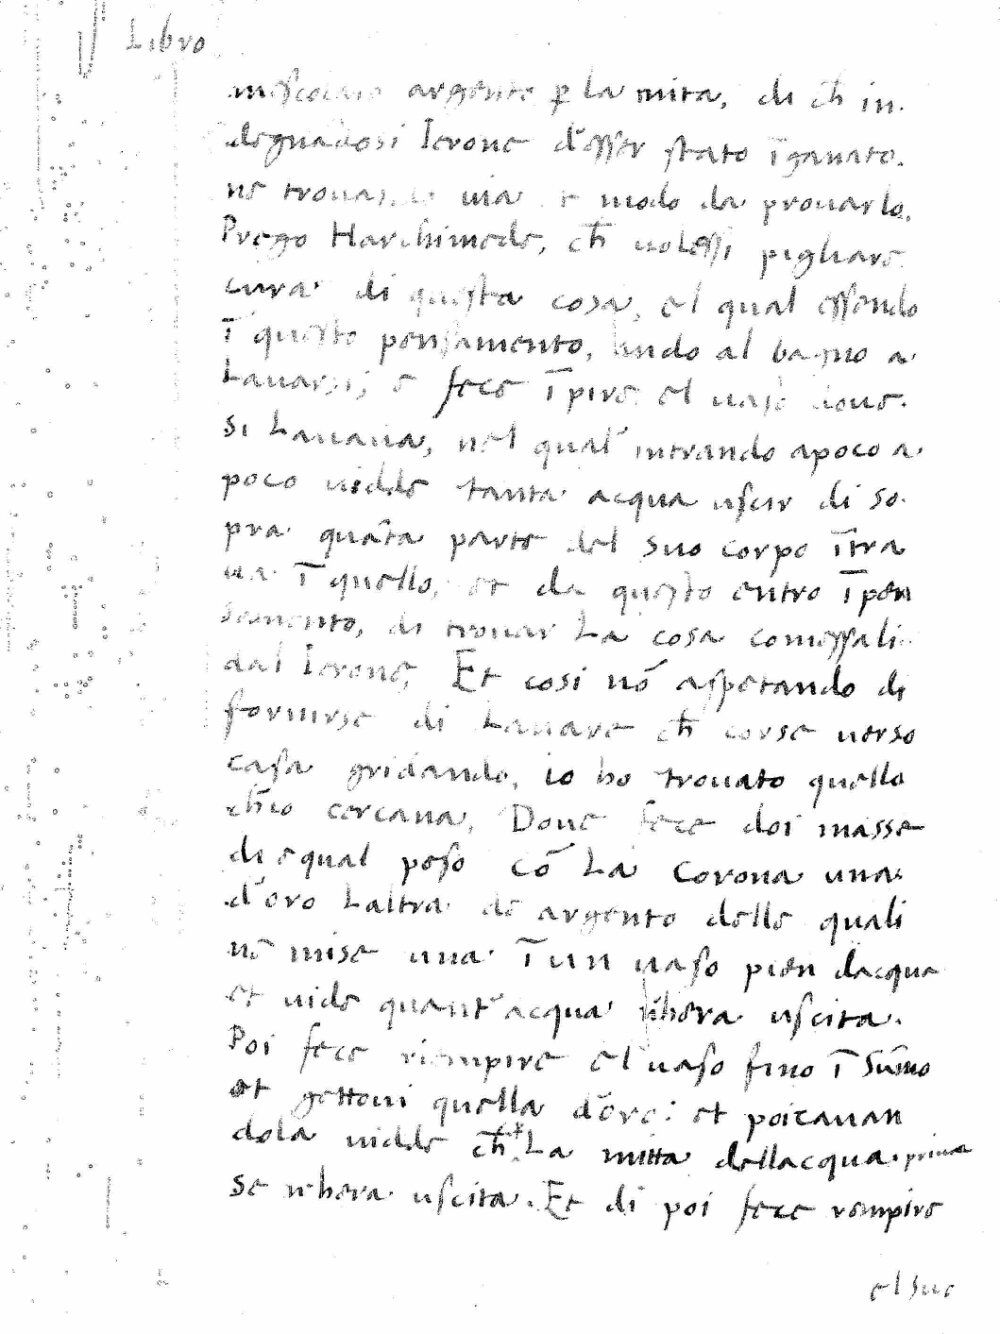 Libro
mescolato argento p̱ la mita, di ch̄ in.
degnādosi Ierone d'esser stato īganato.
nō trouando uia et modo da prouarlo,
Prego Harchimede, ch̄ uolessi pigliare
cura di questa cosa, el qual essendo
ī questo pensamento, ando al bagno a
Lauarsi, e fece īpire el uaso doue
si Lauaua, nel qual intrando apoco a
poco uidde tanta acqua uscir di so
pra quāta parte del suo corpo ītra
ua ī quello, et da questo entro ī pen
samento, di trouar La cosa comessali
dal Ierone, Et cosi nō aspetando di
fornirse di Lauare ch̄ corse uerso
casa gridando, io ho trouato quello
ch̄io cercaua, Doue fece doi masse
di equal peso cō La Corona una
d'oro Laltra de argento delle quali
nē mise una ī un uaso pien dacqua
et uide quant' acqua n'hera uscita.
Poi fece riempire el uaso fino ī sūmo
et gettoui quella d'oro: et poi cauan
dola uidde ch̄ La mitta dellacqua prima
se n'hera uscita. Et di poi fece rempire
el suo